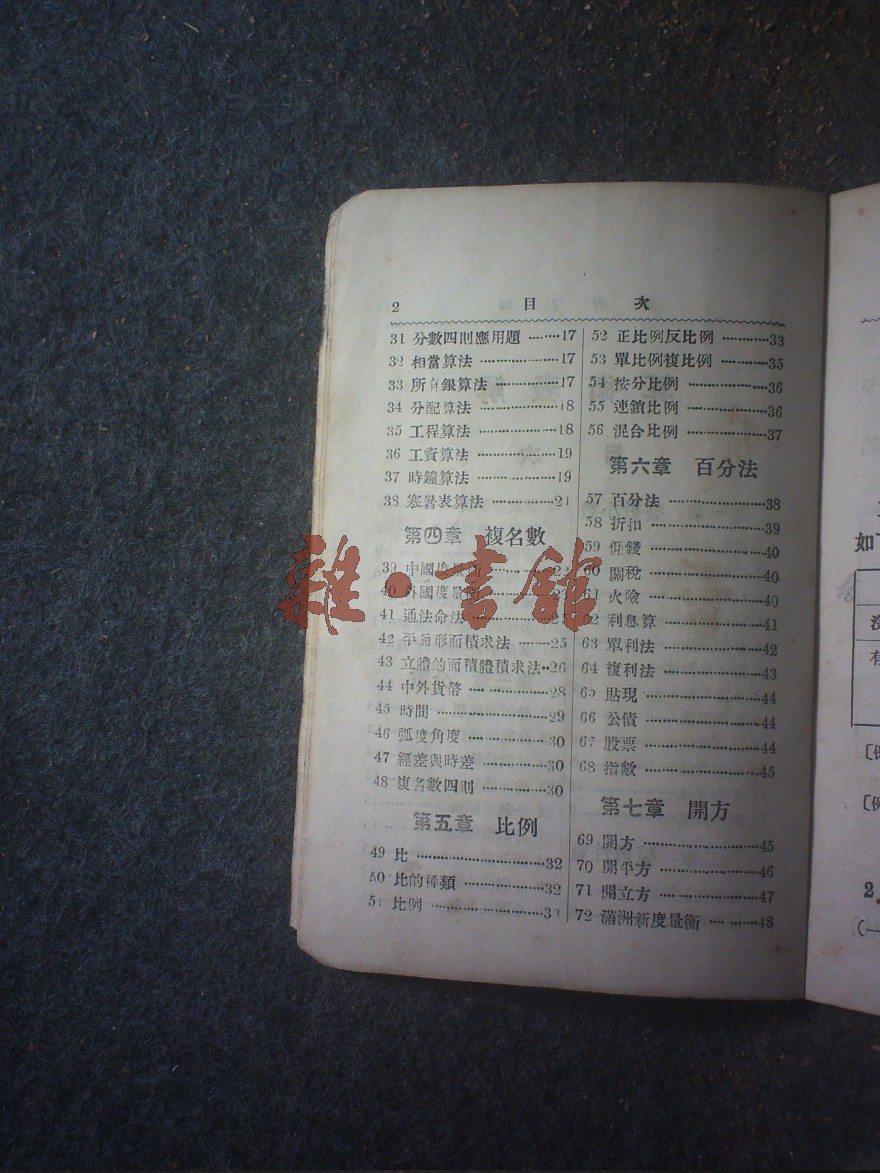 2 目 次
31 分數四則應用題 ········17
32 相當算法 ···············17
33 所有銀算法 ············17
34 分配算法 ···············18
35 工程算法 ···············18
36 工資算法 ···············19
37 時鐘算法 ···············19
38 寒暑表算法 ············21
第四章 複名數
39 中國度量
40 外國度量
41 通法命法
42 平面形面積求法 ········25
43 立體的面積體積求法··26
44 中外貨幣 ···············28
45 時間 ·····················29
46 弧度角度 ···············30
47 經差與時差 ············30
48 複名數四則 ············30
第五章 比例
49 比 ························32
50 比的種類 ···············32
51 比例 ·····················33
52 正比例反比例 ············33
53 單比例複比例 ············35
54 按分比例 ···············36
55 連鎖比例 ···············36
56 混合比例 ···············37
第六章 百分法
57 百分法 ··················38
58 折扣 ·····················39
59 佣錢 ·····················40
60 關稅 ·····················40
61 火險 ·····················40
62 利息算 ··················41
63 單利法 ··················42
64 複利法 ··················43
65 貼現 ·····················44
66 公債 ·····················44
67 股票 ·····················44
68 指數 ·····················45
第七章 開方
69 開方 ·····················45
70 開平方 ··················46
71 開立方 ··················47
72 滿洲新度量衡 ·········48
雜·書館
如
2.
(一